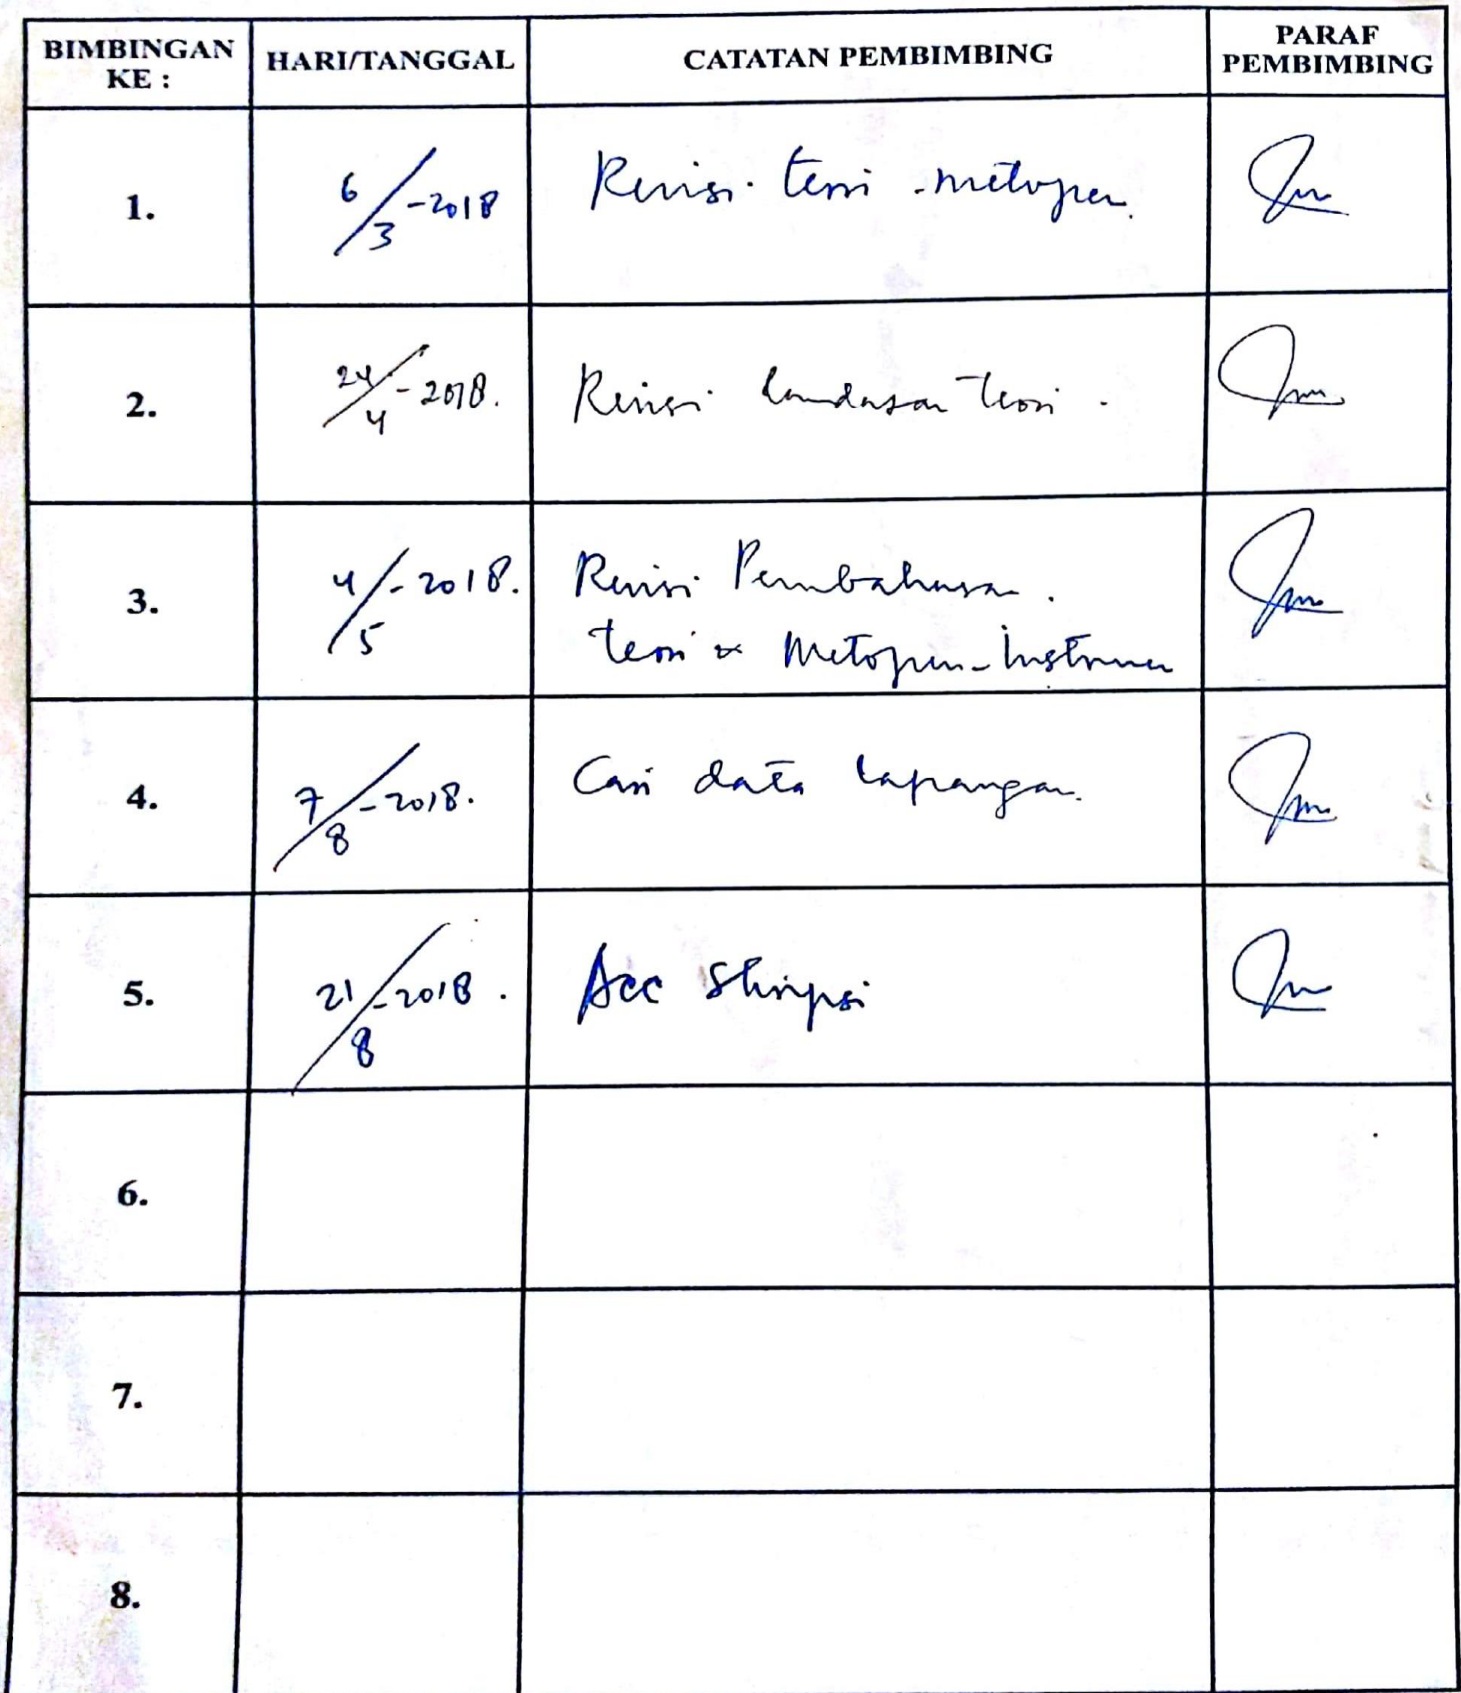 BIMBINGAN KE : HARI/TANGGAL CATATAN PEMBIMBING PARAF PEMBIMBING
1. 6/3 -2018 Revisi teori - metopen.
2. 24/4 - 2018. Revisi landasan teori.
3. 4/5 - 2018. Revisi Pembahasan.
teori & Metopen - Instrumen
4. 7/8 - 2018. Cari data lapangan.
5. 21/8 - 2018. Acc Skripsi
6.
7.
8.